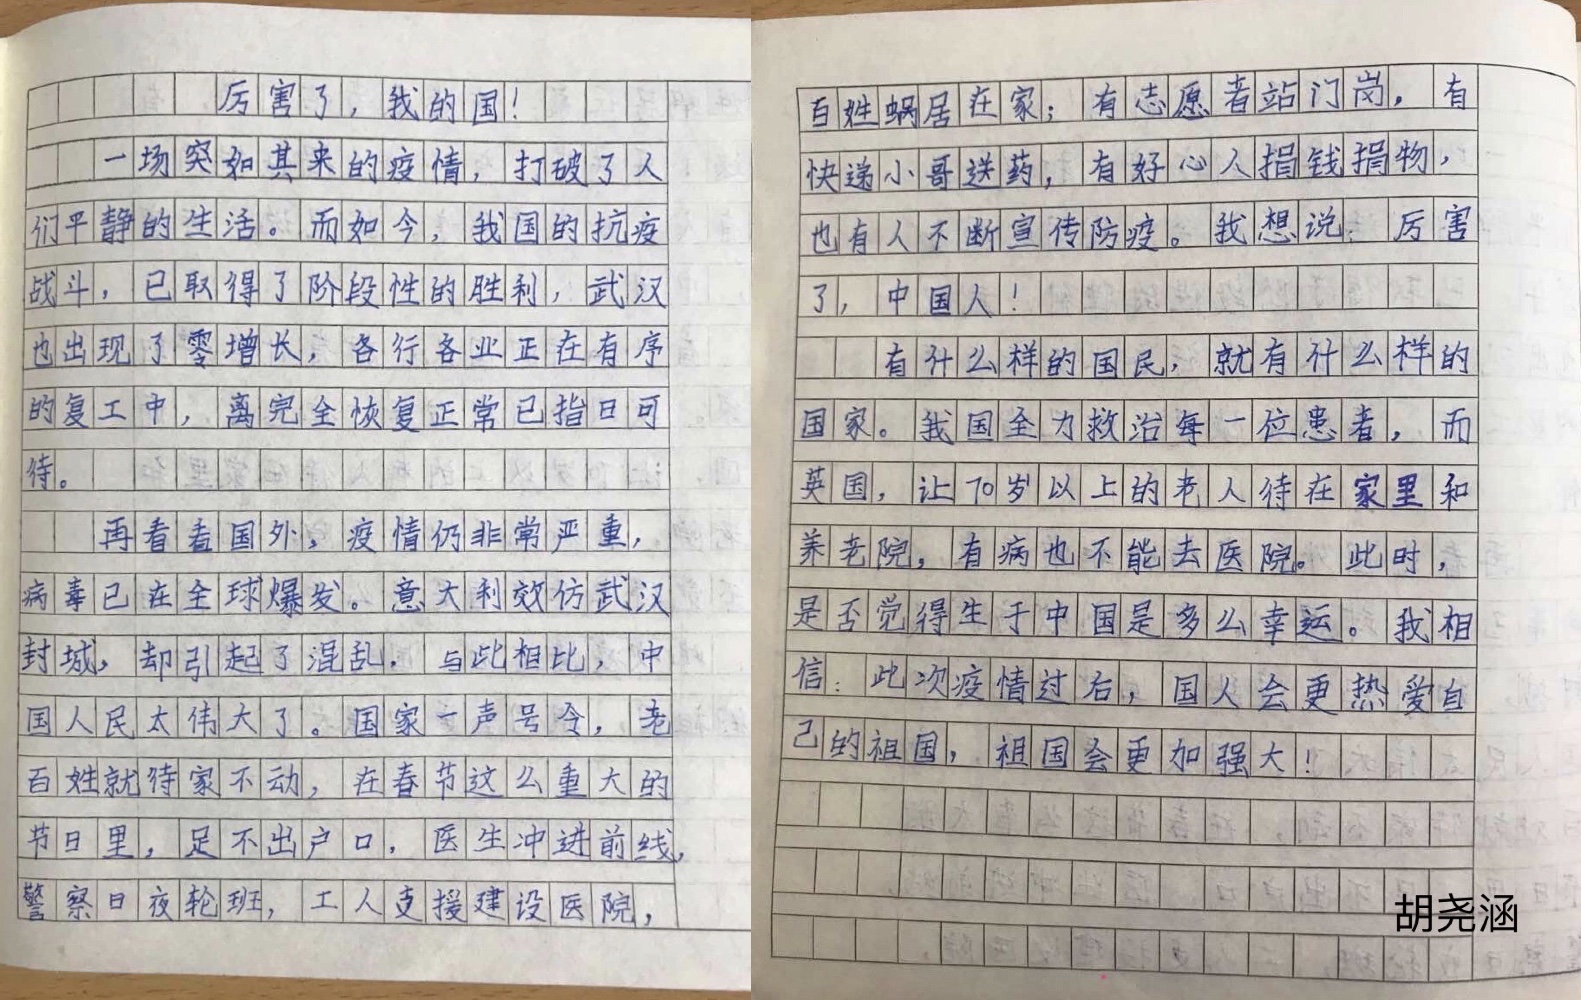 厉害了，我的国！
一场突如其来的疫情，打破了人
们平静的生活。而如今，我国的抗疫
战斗，已取得了阶段性的胜利，武汉
也出现了零增长，各行各业正在有序
的复工中，离完全恢复正常已指日可
待。
再看看国外，疫情仍非常严重，
病毒已在全球爆发。意大利效仿武汉
封城，却引起了混乱，与此相比，中
国人民太伟大了。国家一声号令，老
百姓就待家不动，在春节这么重大的
节日里，足不出户口，医生冲进前线，
警察日夜轮班，工人支援建设医院，
百姓蜗居在家；有志愿者站门岗，有
快递小哥送药，有好心人捐钱捐物，
也有人不断宣传防疫。我想说：厉害
了，中国人！
有什么样的国民，就有什么样的
国家。我国全力救治每一位患者，而
英国，让70岁以上的老人待在家里和
养老院，有病也不能去医院。此时，
是否觉得生于中国是多么幸运。我相
信：此次疫情过右，国人会更热爱自
己的祖国，祖国会更加强大！
胡尧涵